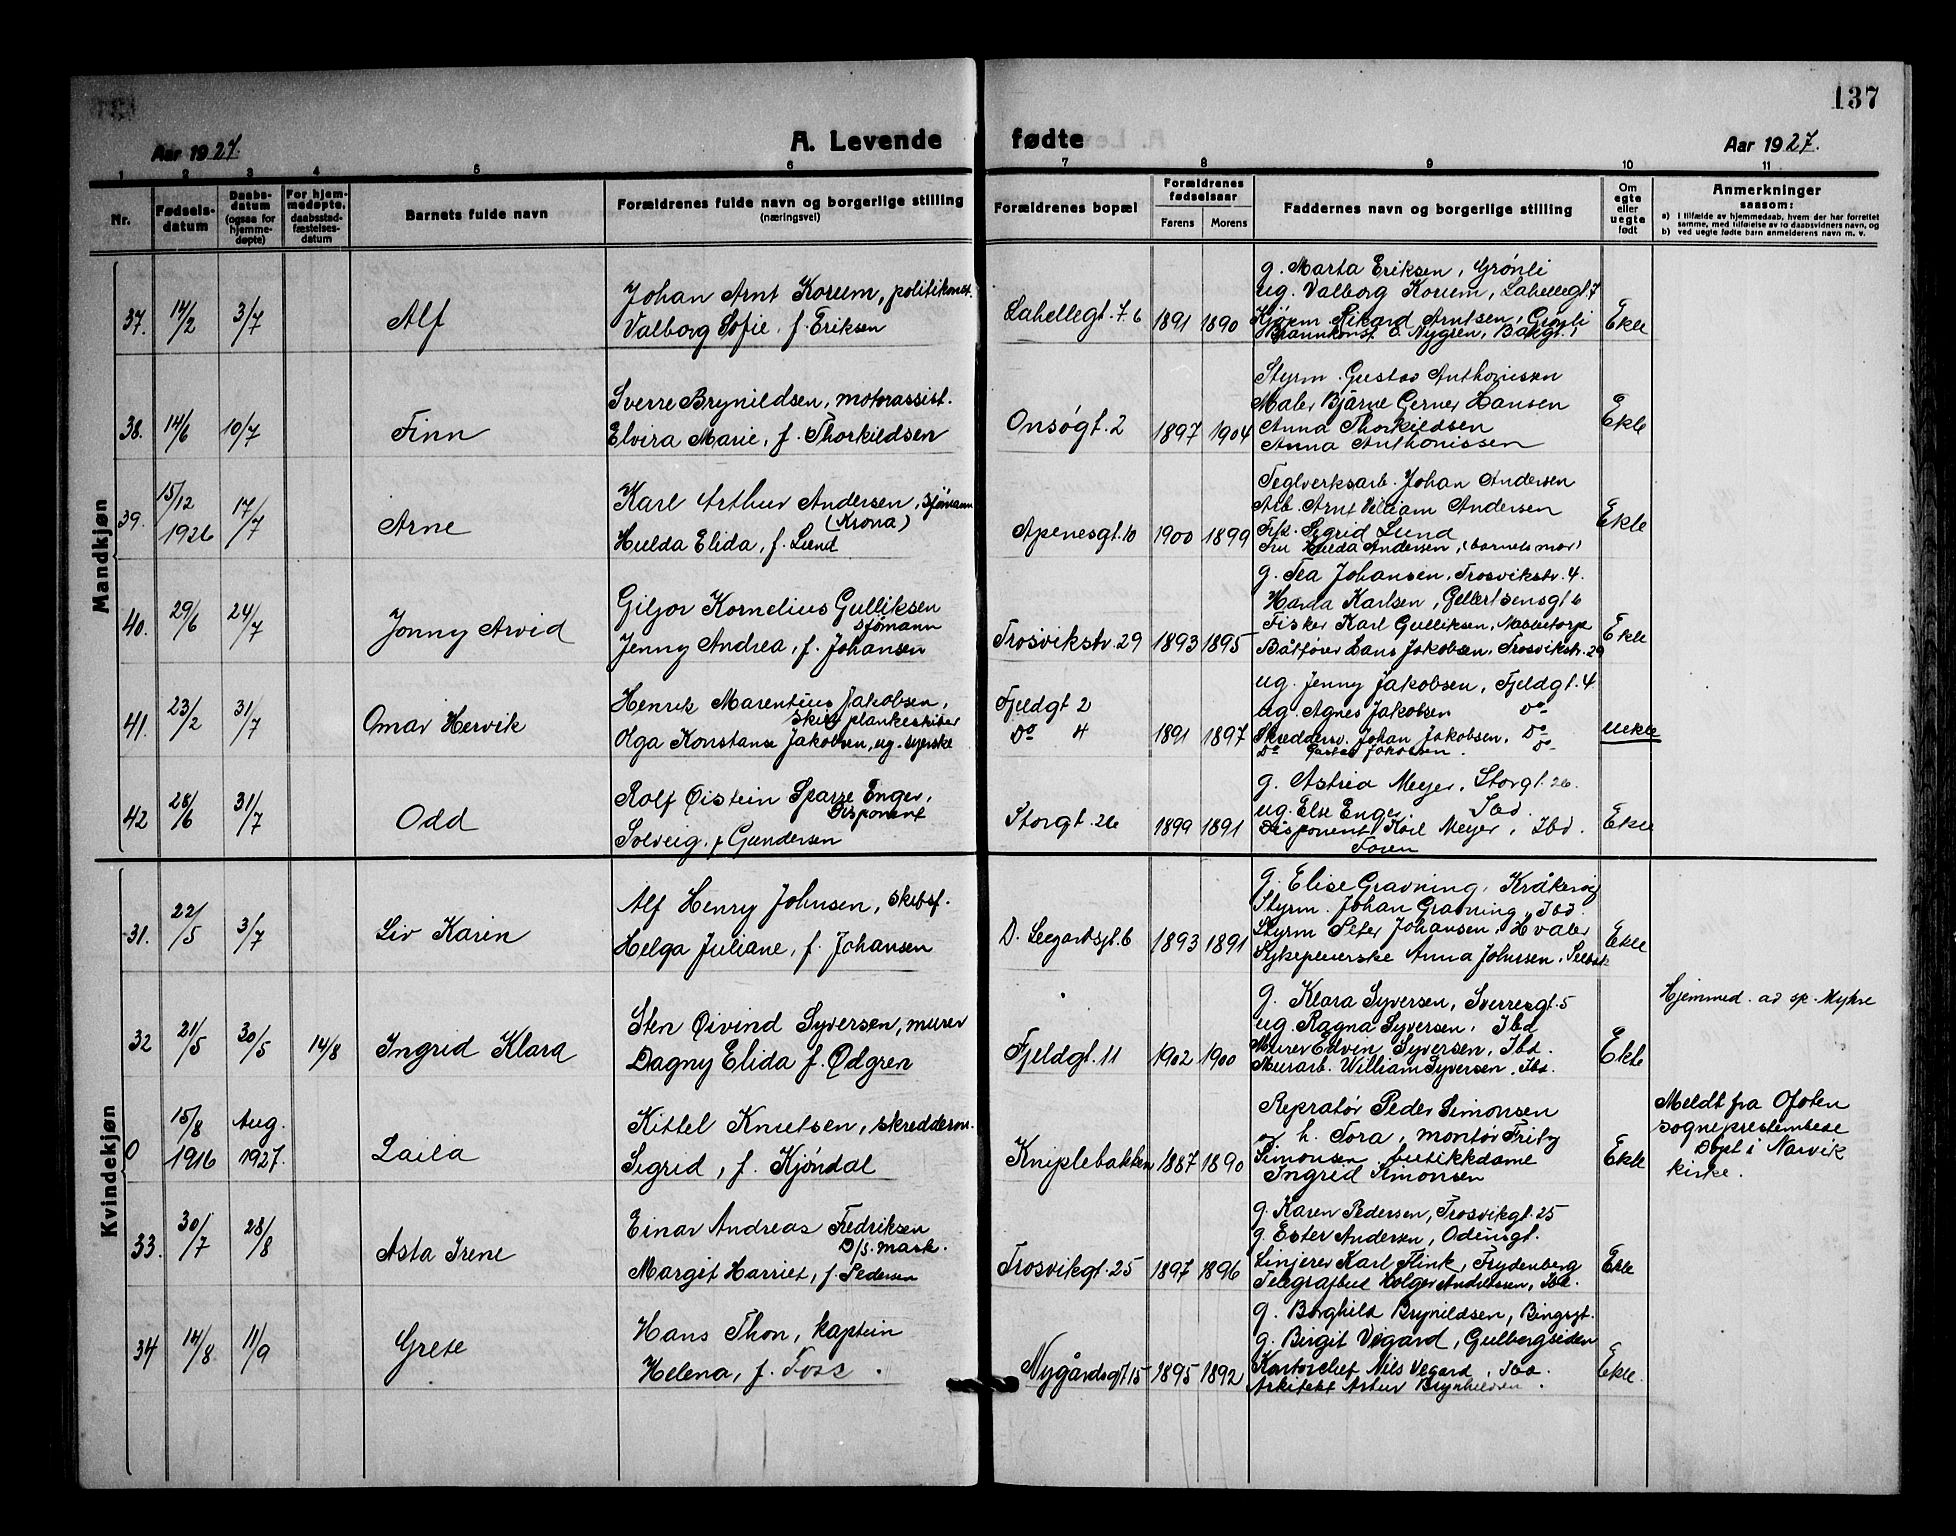 137
Aar 1927.
A. Levende
fødte
Aar 1927.
1 2 3 4 5 6 7 8 9 10 11
Nr.
Fødselsdatum
Daabsdatum (ogsaa for hjemmedøpte)
For hjemmedøpte, daabsstadfæstelsesdatum
Barnets fulde navn
Forældrenes fulde navn og borgerlige stilling
(næringsvei)
Forældrenes bopæl
Forældrenes fødselsaar
Farens Morens
Faddernes navn og borgerlige stilling
Om egte eller uegte født
Anmerkninger
saasom:
a) i tilfælde av hjemmedaab, hvem der har forrettet
samme, med tilføielse av to daabsvidners navn, og
b) ved uegte fødte barn anmelderens navn m. v.
Mandkjøn
37. 14/2 3/7 Alf
Johan Arnt Korum, politikonst.
Valborg Sofie, f. Eriksen
Lahellegt. 7.6 1891 1890
g. Marta Eriksen, Grønli
ug. Valborg Korum, Lahellegt 7
Rikard Arntsen, Grønli
Brannkonst. O. Nygren,
Ekte
38. 14/6 10/7 Finn
Sverre Brynildsen, motorassist.
Elvira Marie, f. Thorkildsen
Onsøgt. 2 1897 1904
Styrm. Gustav Anthonisen
Maler Bjarne Gerner Hansen
Anna Thorkildsen
Anna Anthonissen
Ekte
39. 15/12 1926 17/7 Arne
Karl Arthur Andersen, Sjömann
(Krona)
Hulda Elida, f. Lund
Apenesgt. 10 1900 1899
Teglverksarb. Johan Andersen
Arb. Arnt Villiam Andersen
Frk. Sigrid Lund
Fru Hulda Andersen, (barnets mor)
Ekte
40. 29/6 24/7 Jonny Arvid
Giljor Kornelius Gulliksen
Sjömann
Jenny Andrea, f. Johansen
Trosvikstr 29 1893 1895
g. Tea Johansen, Trosvikstr. 4.
Harda Karlsen, Gellertsensgt 6
Fisker Karl Gulliksen,
Båtfører Hans Jakobsen, Trosvikstr. 29
Ekte
41. 23/2 31/7 Omar Hervik
Henrik Marentius Jakobsen,
Olga Konstanse Jakobsen, ug. syerske
Fjeldgt 2
Do 4 1891 1897
ug. Jenny Jakobsen, Fjeldgt. 4
ug. Agnes Jakobsen Do
Skredderv. Johan Jakobsen, Do
Do Gustav Jakobsen. Do
uekte
42 28/6 31/7 Odd
Rolf Øistein Sparre Enger,
Disponent
Solveig, f Gundersen
Storgt. 26 1899 1891
g. Astrid Meyer, Storgt. 26
ug. Else Enger. Ibd.
Disponent Karl Meyer, Ibd.
Faren
Ekte
Kvindekjøn
31. 22/5 3/7 Liv Karin
Alf Henry Johnsen, skibsf.
Helga Juliane, f. Johansen
D. Leegardsgt. 6 1893 1891
g. Elise Gravning, Kråkerøy
Styrm. Johan Gravning, Ibd.
Styrm Peter Johansen, Hvaler
Sykepleierske Anna Johnsen,
Ekte
32 21/5 30/5 14/8 Ingrid Klara
Sten Øivind Syversen, murer
Dagny Elida f. Ødgren
Fjeldgt. 11 1902 1900
g. Klara Syversen, Sverresgt. 5
ug. Ragna Syversen, Ibd
Murer Edvin Syversen, Ibd.
Murarb. William Syversen, Ibd.
Ekte
Hjemmed. av sp. Myhre
0 15/8 1916 Aug. 1927. Laila
Kittel Knutsen, skredderm.
Sigrid, f. Kjøndal
Kniplebakken 1887 1890
Repratør Peder Simonsen
og h. Tora, montør Fritz
Simonsen butikkdame
Ingrid Simonsen
Ekte
Meldt fra Ofoten
sogneprestembede
Døpt i Narvik
kirke.
33. 30/7 28/8 Asta Irene
Einar Andreas Fredriksen
D/S. mask.
Margit Harriet, f. Pedersen
Trosvikgt. 25 1897 1896
g. Karen Pedersen, Trosvikgt. 25
g. Ester Andersen, Odinsgt.
Linjerer Karl Flink, Frydenberg
Telegrafbud Holger Andreassen, Ibd.
Ekte
34 14/8 11/9 Grete
Hans Thon, kaptein
Helena, f. Foss.
Nygårdsgt 15 1895 1892
g. Borghild Brynildsen, Bingsgt.
g. Birgit Vegard, Gulbergsiden
Kontorchef Nils Vegard, Ibd.
Arkitekt Artur Brynhildsen.
Ekte.